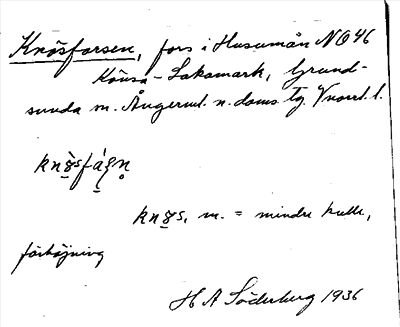 Knösforsen, fors i Husumån NO 46
Könsa-Lakamark, Grund-
sunda sn. Ångerml. n. doms. tg. Vnorrl. l.
knös, m. = mindre kulle,
förhöjning
H A Söderberg 1936